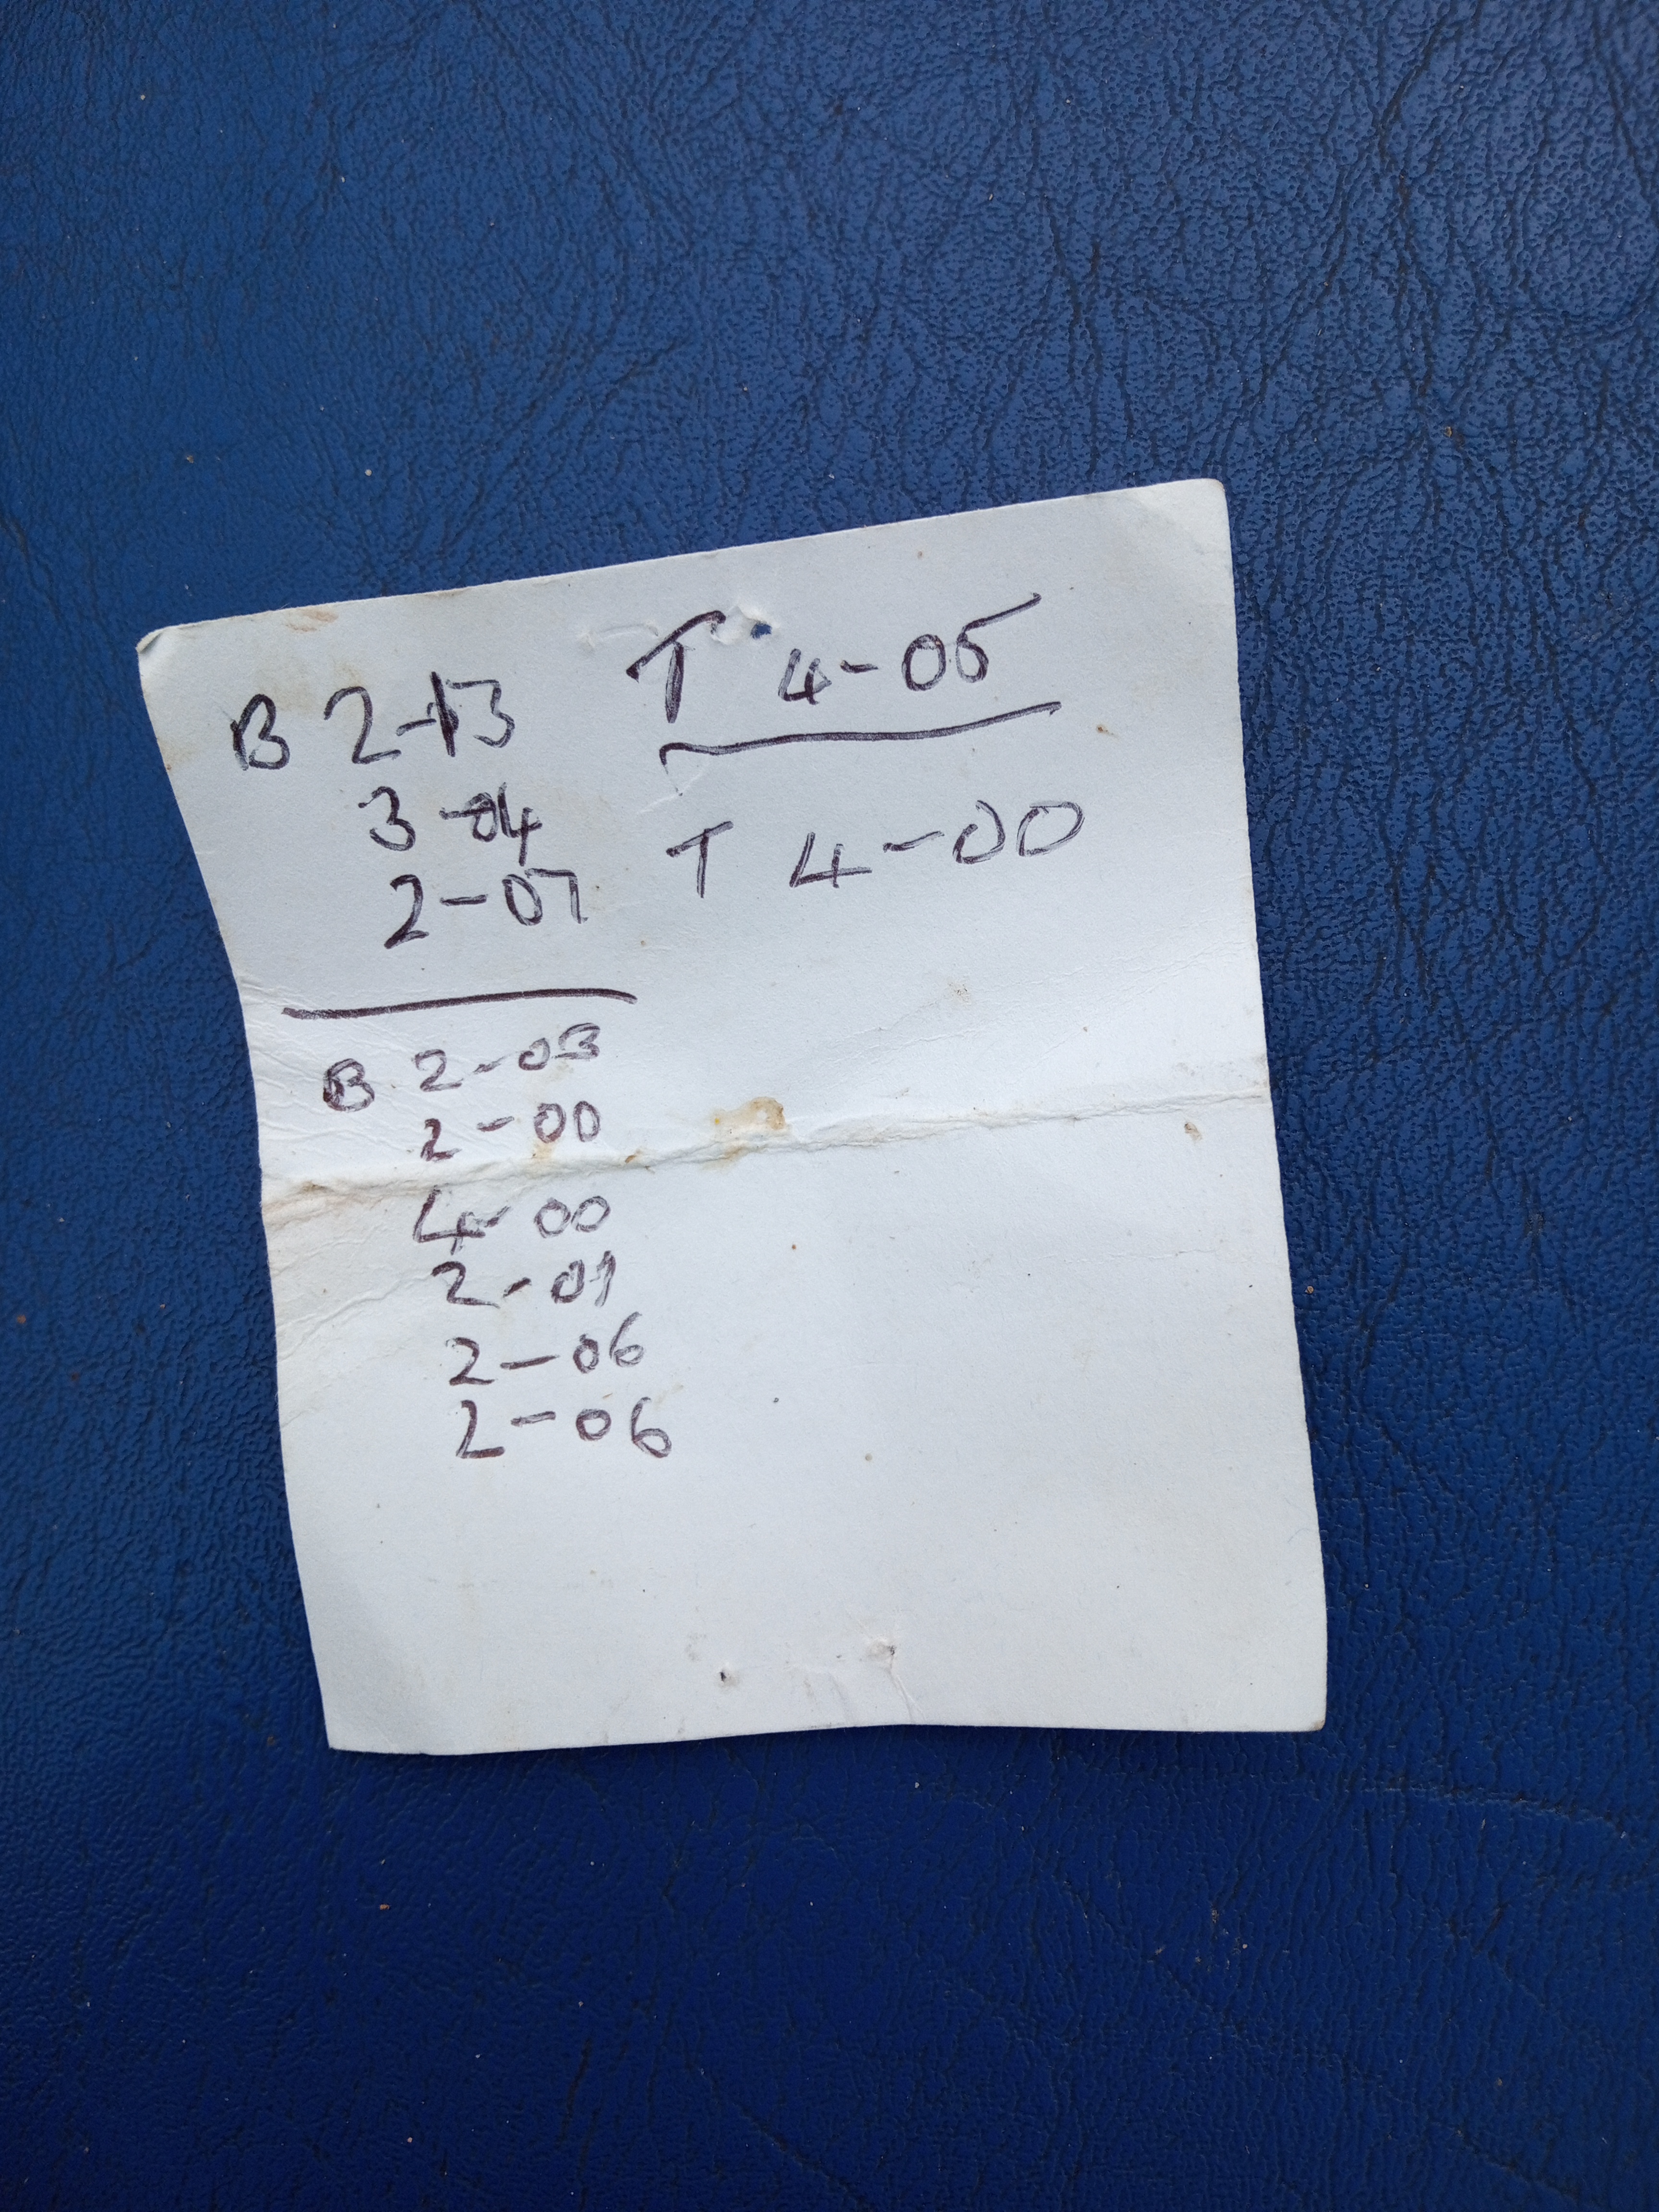 B 2-13
3-04
2-07
B 2-03
2-00
4-00
2-01
2-06
2-06
T 4-05
T 4-00